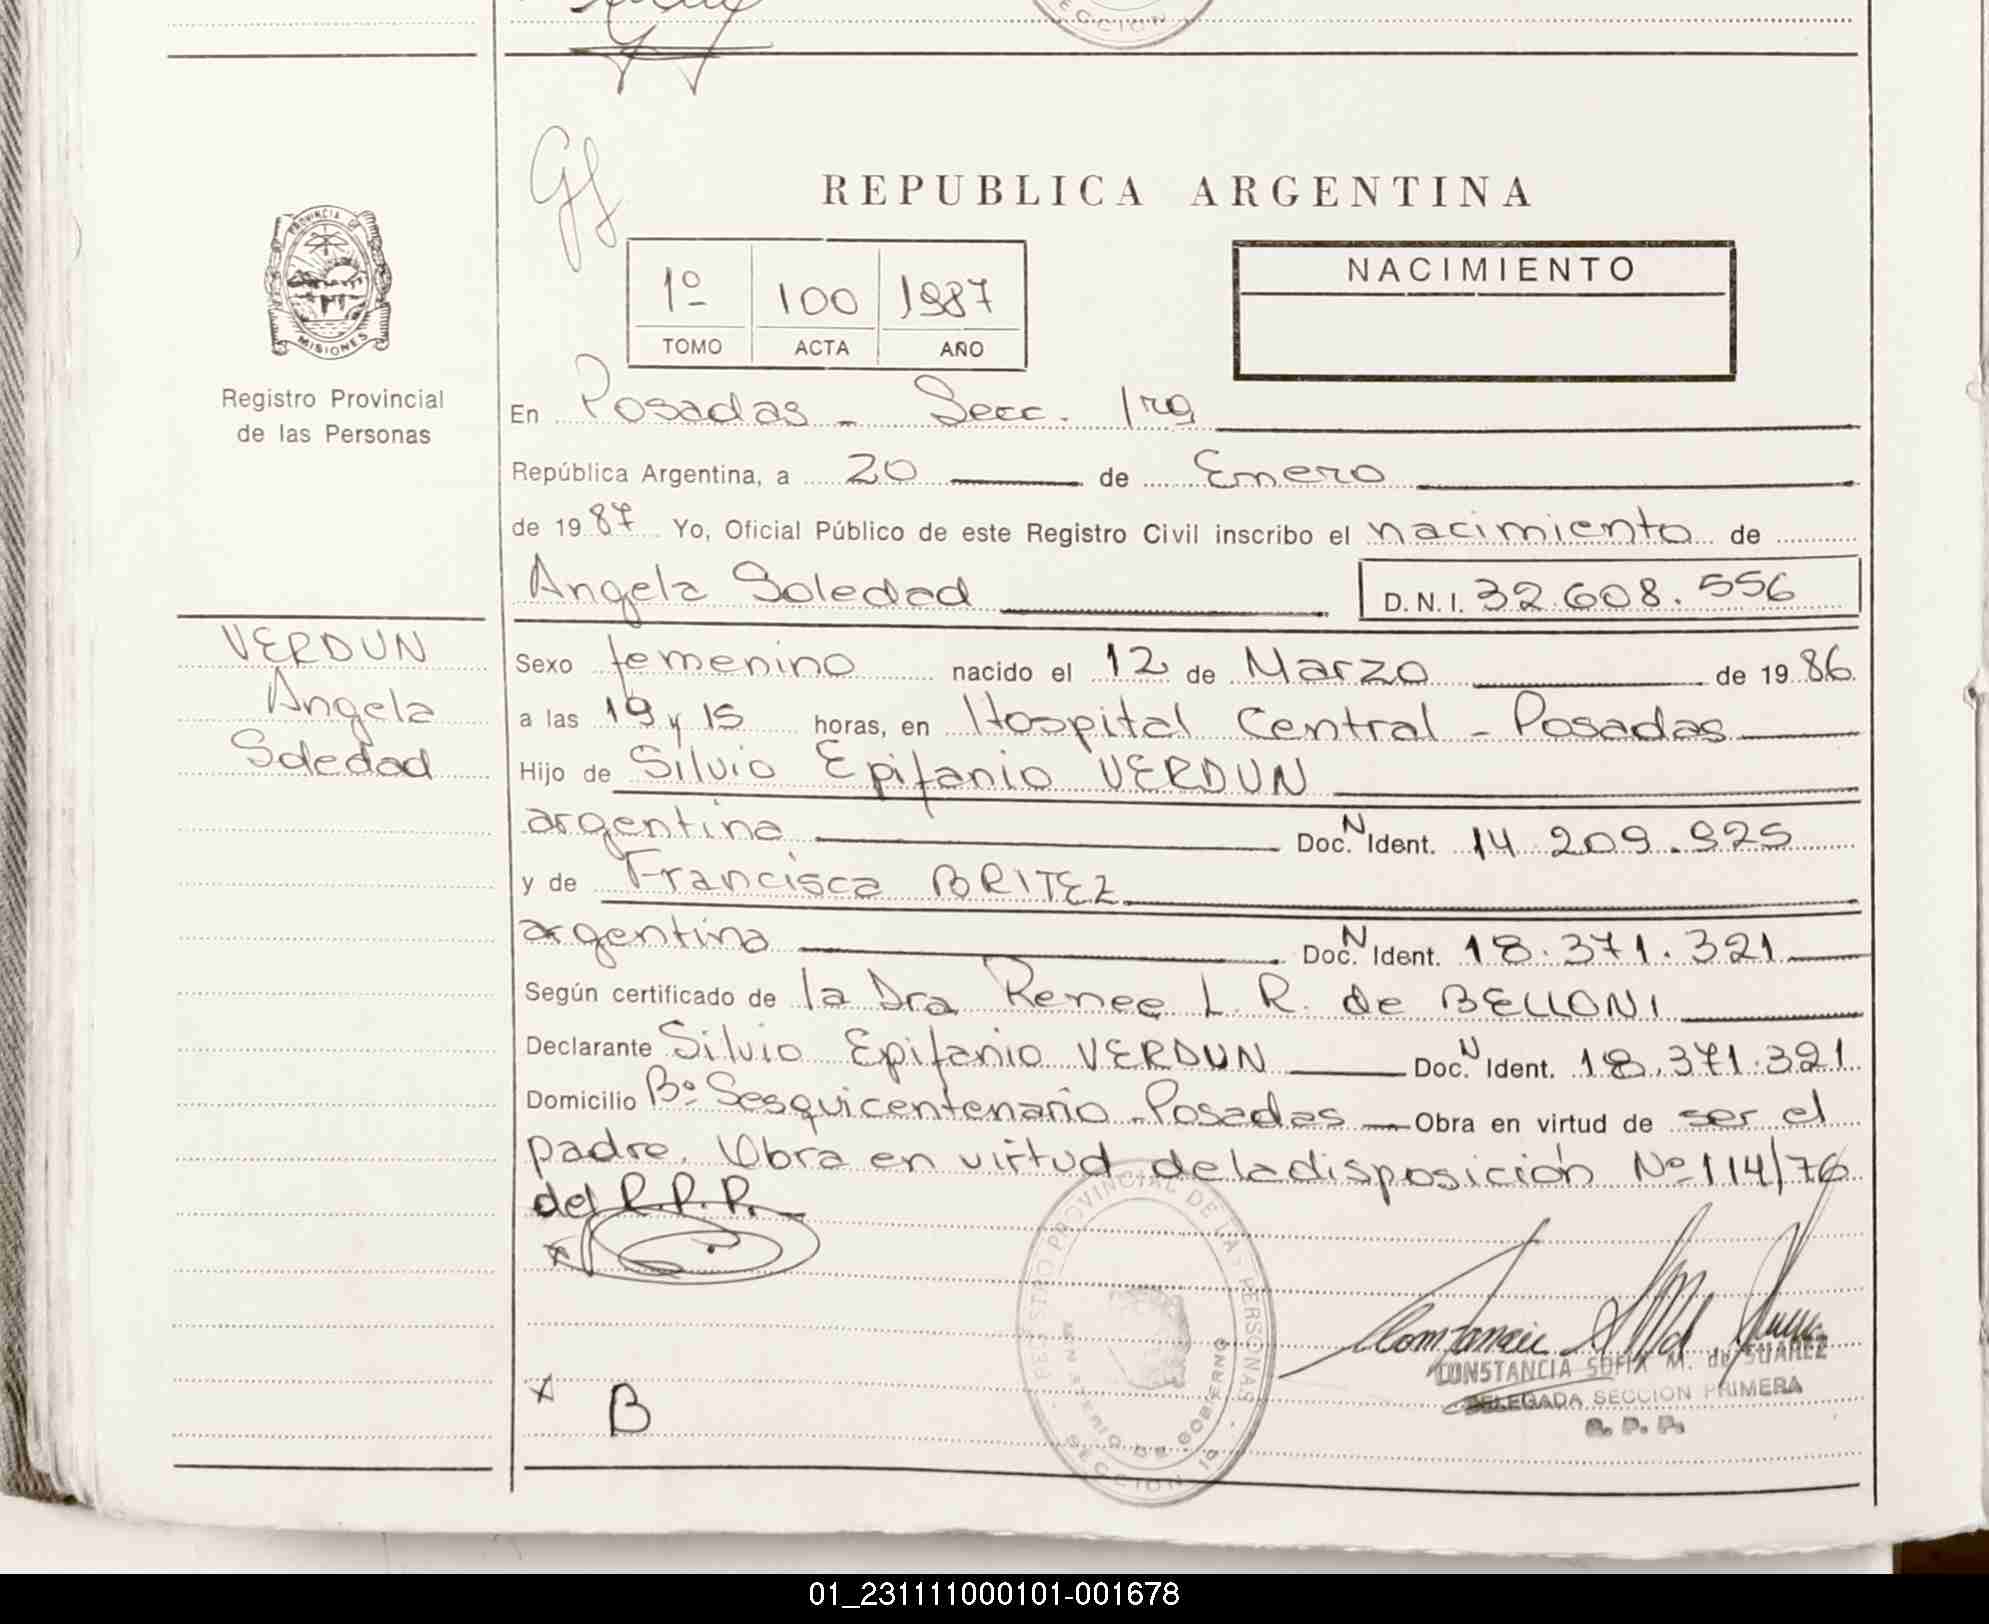 SECCION
REPUBLICA ARGENTINA
PROVINCIA DE
MISIONES
NACIMIENTO
1º 100 1987
TOMO ACTA AÑO
Registro Provincial
de las Personas
En Posadas - Secc. 1ra
República Argentina, a 20 de Enero
de 1987 Yo, Oficial Público de este Registro Civil inscribo el nacimiento de
Angela Soledad D.N.I. 32.608.556
VERDUN
Angela
Soledad
Sexo femenino nacido el 12 de Marzo de 1986
a las 19 y 15 horas, en Hospital Central - Posadas
Hijo de Silvio Epifanio VERDUN
argentina Doc. N Ident. 14.209.925
y de Francisca BRITEZ
argentina Doc. N Ident. 18.371.321
Según certificado de la Dra Renee L. R. de BELLONI
Declarante Silvio Epifanio VERDUN Doc. N Ident. 18.371.321
Domicilio Bº Sesquicentenario - Posadas Obra en virtud de ser el
padre. Obra en virtud de la disposición Nº 114/76
del R.P.P.
REGISTRO PROVINCIAL DE LAS PERSONAS
MINISTERIO DE GOBIERNO
SECCION 1ª
CONSTANCIA SOFIA M. de SUAREZ
DELEGADA SECCION PRIMERA
R. P. P.
x B
01_231111000101-001678